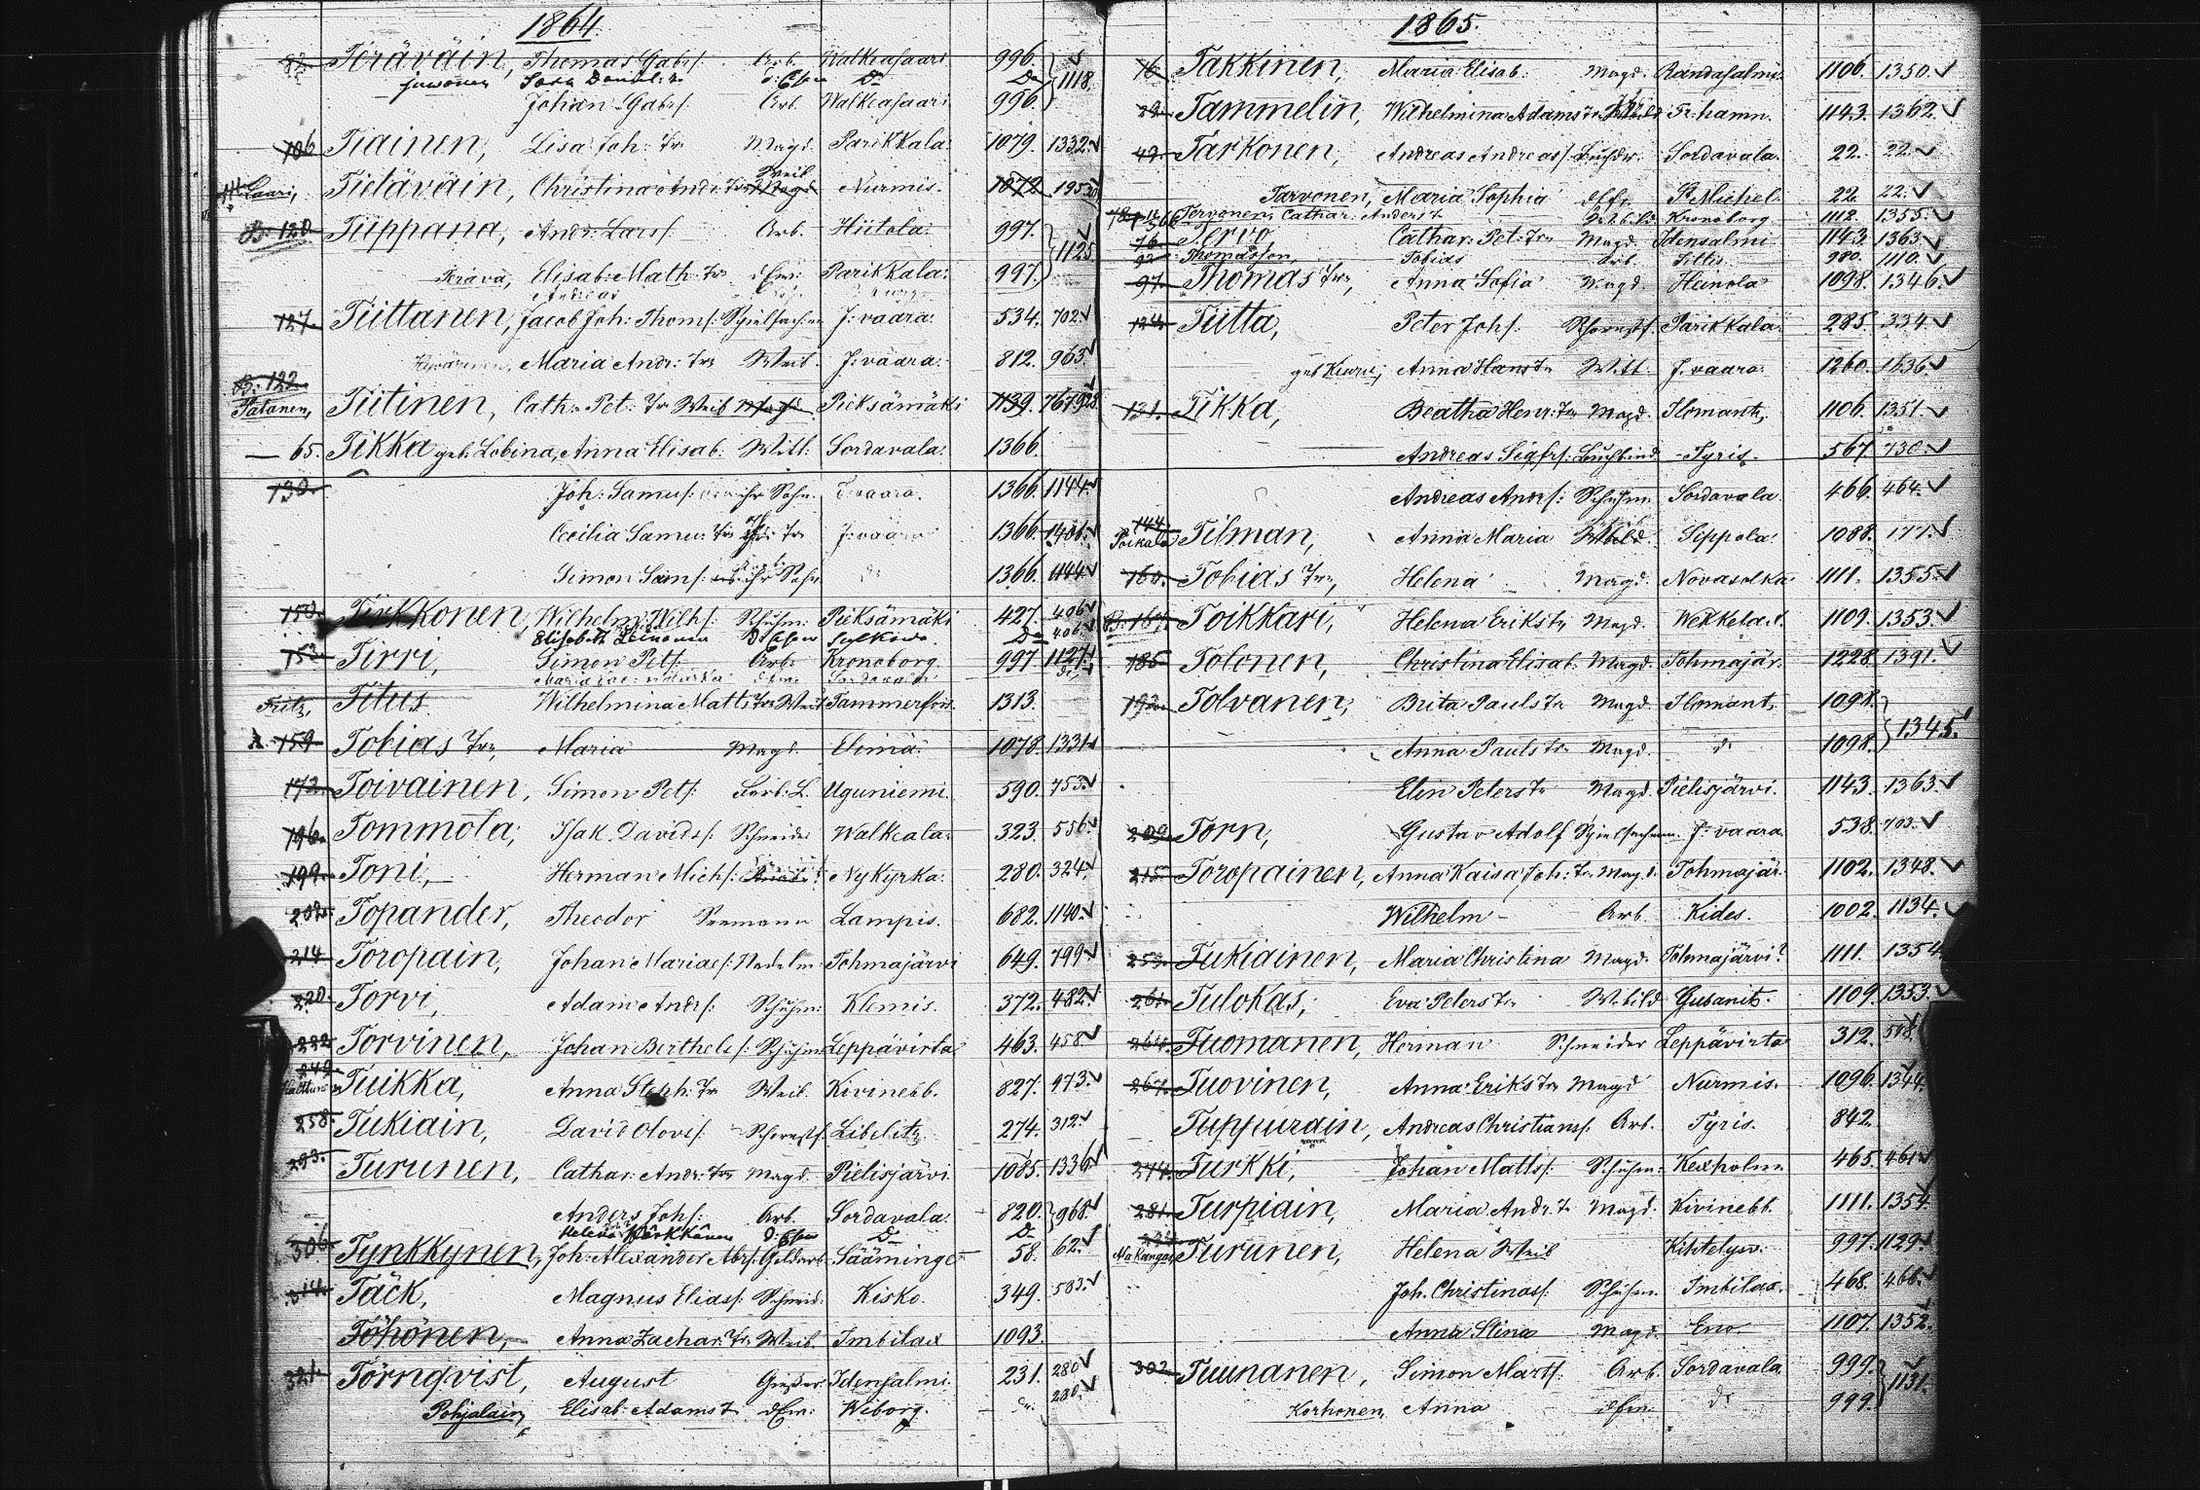 1864.
82. Teräväin, Thomas Gabrs. Arb. Walkeasaari 996.
Juvonen Sara Daniel: tr d: Efru Do Do 1118.
Johan Gabrs. Arb. Walkeasaari 996.
106 Tiainen, Lisa Joh: Tr Magd. Parikkala. 1079. 1332.
Saari, Tietäväin, Christina Andr: Tr Weib Magd. Nurmis. 1072
B: 120. Tiippana, Andr: Larss. Arb. Hiitola. 997. 1125.
Räävä, Elisab: Math: Tr d Efru: Parikkala. 997.
127. Tiittanen, Jacob Joh: Thoms: J: vaara. 534. 702.
Maria Andr: Tr Weib. J: vaara. 812. 963.
B: 122.
Patanen, Tiitinen, Cath: Pet: Tr Weib Magd. Pieksämäki 1139.
65. Tikka geb. Lobina, Anna Elisab: Witt: Sordavala. 1366.
130. Joh: Samus: ihr Sohn. J: vaara. 1366. 1144.
Cecilia Samu: Tr ihr Tr J: vaara 1366. 1401.
Simon Sams: ihr Sohn do 1366. 1144.
150. Tirkkonen, Wilhelm Wilhs: Schuhm: Pieksämäki 427. 406
Elisabeth Leinonen D: Efru Do 406.
153. Tirri, Simon Pets: Arb: Kronoborg. 997 1127.
Fritz, Titus. Wilhelmina Matts Tr Weib Tammerfors. 1313.
A. 159. Tobias Tr, Maria Magd. Elimä. 1078. 1331.
172. Toivainen, Simon Pets: Uguniemi. 590. 753.
196. Tommola, Isak Davids: Schneider Walkeala. 323. 556.
199. Toni, Herman Michs: Nykyrka. 280. 324.
208. Topander, Theodor Seemann Lampis. 682. 1140.
214. Toropain, Johan Marias: Nadelm: Tohmajärvi 649. 799.
220. Torvi, Adam Andrs: Schuhm: Klemis. 372. 482.
222. Torvinen, Johan Berthels: Schuhm: Leppävirta 463. 458.
242. Tuikka, Anna Steph: Tr Weib. Kivinebb. 827. 973.
258. Tukiain, David Olovs: Schornstf. Libelitz. 274. 312.
293. Turunen, Cathar: Andr: Tr Magd. Pielisjärvi. 1085. 1336.
Anders Johs: Arb. Sordavala. 820. 968.
Helena Kärkkänen D: Efru Do Do
306. Tynkkynen, Joh: Alexander Abrs: Goldarb: Sääminge 58. 62.
314. Täck, Magnus Elias: Schneid: Kisko. 349. 583.
Töhönen, Anna Zachar: Tr. Weib. Imbilax 1093.
321. Törnqvist, August Gießer. Idensalmi. 231. 280
Pohjalain, Elisab: Adams Tr d Efru: Wiborg. do. 280.
1865.
16. Takkinen, Maria Elisab: Magd. Randasalmi. 1106. 1350.
29. Tammelin, Wilhelmina Adams Tr Fr: hamn. 1143. 1362.
42. Tarkonen, Andreas Andreass. Buchdr. Sordavala. 22. 22.
Tarvonen, Maria Sophia d Efr. St Michel. 22. 22.
Tervonen, Cathar: Anders Tr Kronoborg 1112. 1355.
76. Tervo Cathar: Pet: Tr Magd. Idensalmi 1143. 1363.
92. Thomasson, Tobias Arb. Sittis 980. 1110.
97. Thomas Tr, Anna Sofia Magd. Heinola 1098. 1346.
124. Tiitta, Peter Johs. Schornstf. Parikkala. 285. 334.
Anna Hans Tr Witt. J. vaara. 1260. 1636.
131. Tikka, Beatha Henr: Tr Magd. Ilomants, 1106. 1351.
Andreas Sigfrs: Buchbind. Pyris. 567. 730.
Andreas Andrs: Schuhm. Sordavala. 466. 464.
144. Poikala Tilman, Anna Maria Sippola. 1088. 177.
160. Tobias Tr, Helena Magd. Novasolka 1111. 1355.
Toikkari, Helena Eriks Tr Magd. Wekkelax. 1109. 1353.
185 Tolonen, Christina Elisab: Magd. Tohmajär. 1228. 1391.
192. Tolvanen, Brita Pauls Tr Magd. Ilomants, 1098.
Anna Pauls Tr Magd. do 1098. 1345.
Elin Peters Tr Magd. Pielisjärvi. 1143. 1363.
209. Torn, Gustav Adolf J: vaara. 538. 703.
215. Toropainen, Anna Kaisa Joh: Tr Magd. Tohmajär. 1102. 1348.
Wilhelm Arb. Kides. 1002. 1134.
259. Tukiainen, Maria Christina Magd. Tohmajärvi? 1111. 1354
261. Tulokas, Eva Peters Tr W. bild. Gubanitz. 1109. 1353.
264. Tuomanen, Herman Schneider Leppävirta 312.
267. Tuovinen, Anna Eriks Tr Magd Nurmis. 1096. 1344.
Tuppurain, Andreas Christians. Arb. Pyris. 842.
274. Turkki, Johan Matts: Schuhm: Kexholm. 465. 461.
281. Turpiain, Maria Andr: Tr Magd. Kivinebb. 1111. 1354.
Turunen, Helena Weib Kihtelysv. 997. 1129.
Joh. Christinas: Schuhm. Imbilax. 468. 466.
Anna Stina Magd. Eno. 1107. 1352.
302. Tuunanen, Simon Marts. Arb. Sordavala 999. 1131.
Korhonen, Anna d Efru: do 999.